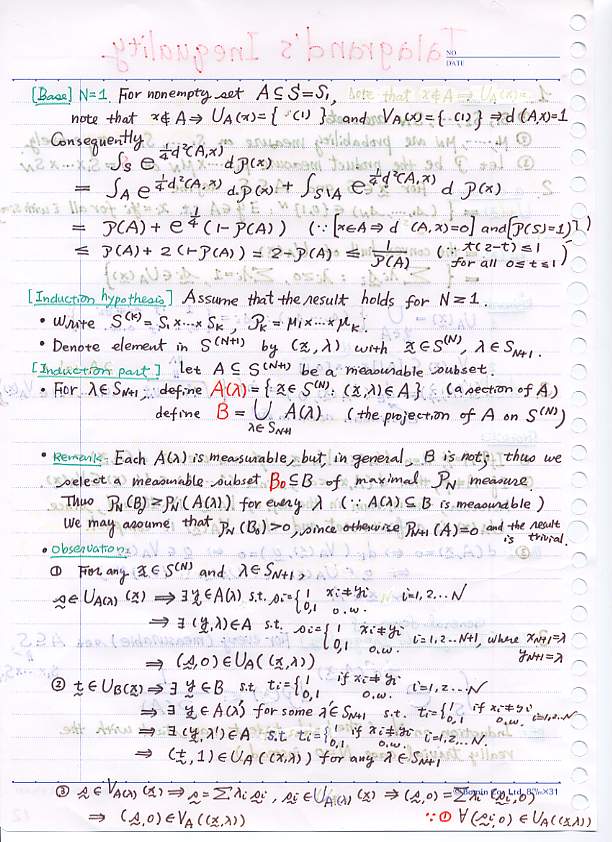 NO.
DATE
[Base] N=1. For nonempty set A⊆S=S₁,
note that x∉A ⇒ U_A(x)={ (1) } and V_A(x)={ (1) } ⇒ d(A,x)=1
Consequently
∫_S e^{¼d²(A,x)} dP(x)
= ∫_A e^{¼d²(A,x)} dP(x) + ∫_{S\A} e^{¼d²(A,x)} dP(x)
= P(A) + e^{¼}(1-P(A)) (∵ [x∈A ⇒ d(A,x)=0] and [P(S)=1])
≤ P(A) + 2(1-P(A)) = 2-P(A) ≤ 1/P(A) (∵ t(2-t) ≤ 1 for all 0≤t≤1)
[Induction hypothesis] Assume that the result holds for N≥1.
• Write S^(K) = S₁×...×S_K, P_K = μ₁×...×μ_K.
• Denote element in S^(N+1) by (x,λ) with x∈S^(N), λ∈S_{N+1}.
[Induction part] let A⊆S^(N+1) be a measurable subset.
• For λ∈S_{N+1}, define A(λ)={x∈S^(N) : (x,λ)∈A} (a section of A)
define B = ∪_{λ∈S_{N+1}} A(λ) (the projection of A on S^(N))
• Remark. Each A(λ) is measurable, but, in general, B is not; thus we
select a measurable subset B₀⊆B of maximal P_N measure.
Thus P_N(B)≥P_N(A(λ)) for every λ (∵ A(λ)⊆B is measurable)
We may assume that P_N(B₀)>0, since otherwise P_{N+1}(A)=0 and the result is trivial.
• Observation:
① For any x∈S^(N) and λ∈S_{N+1},
s∈U_{A(λ)}(x) ⇒ ∃y∈A(λ) s.t. si={1 xi≠yi; 0,1 o.w. i=1,2...N
⇒ ∃(y,λ)∈A s.t. si={1 xi≠yi; 0,1 o.w. i=1,2...N+1, where x_{N+1}=λ y_{N+1}=λ
⇒ (s,0)∈U_A((x,λ))
② t∈U_B(x) ⇒ ∃y∈B s.t. ti={1 if xi≠yi; 0,1 o.w. i=1,2,...N
⇒ ∃y∈A(λ') for some λ'∈S_{N+1} s.t. ti={1 if xi≠yi; 0,1 o.w. i=1,2,...N
⇒ ∃(y,λ')∈A s.t. ti={1 if xi≠yi; 0,1 o.w. i=1,2,...N.
⇒ (t,1)∈U_A((x,λ)) for any λ∈S_{N+1}
③ s∈V_{A(λ)}(x) ⇒ s=Σλi si, si∈U_{A(λ)}(x) ⇒ (s,0)=Σλi(si,0)
⇒ (s,0)∈V_A((x,λ)) ∵① ∀(si,0)∈U_A((x,λ))